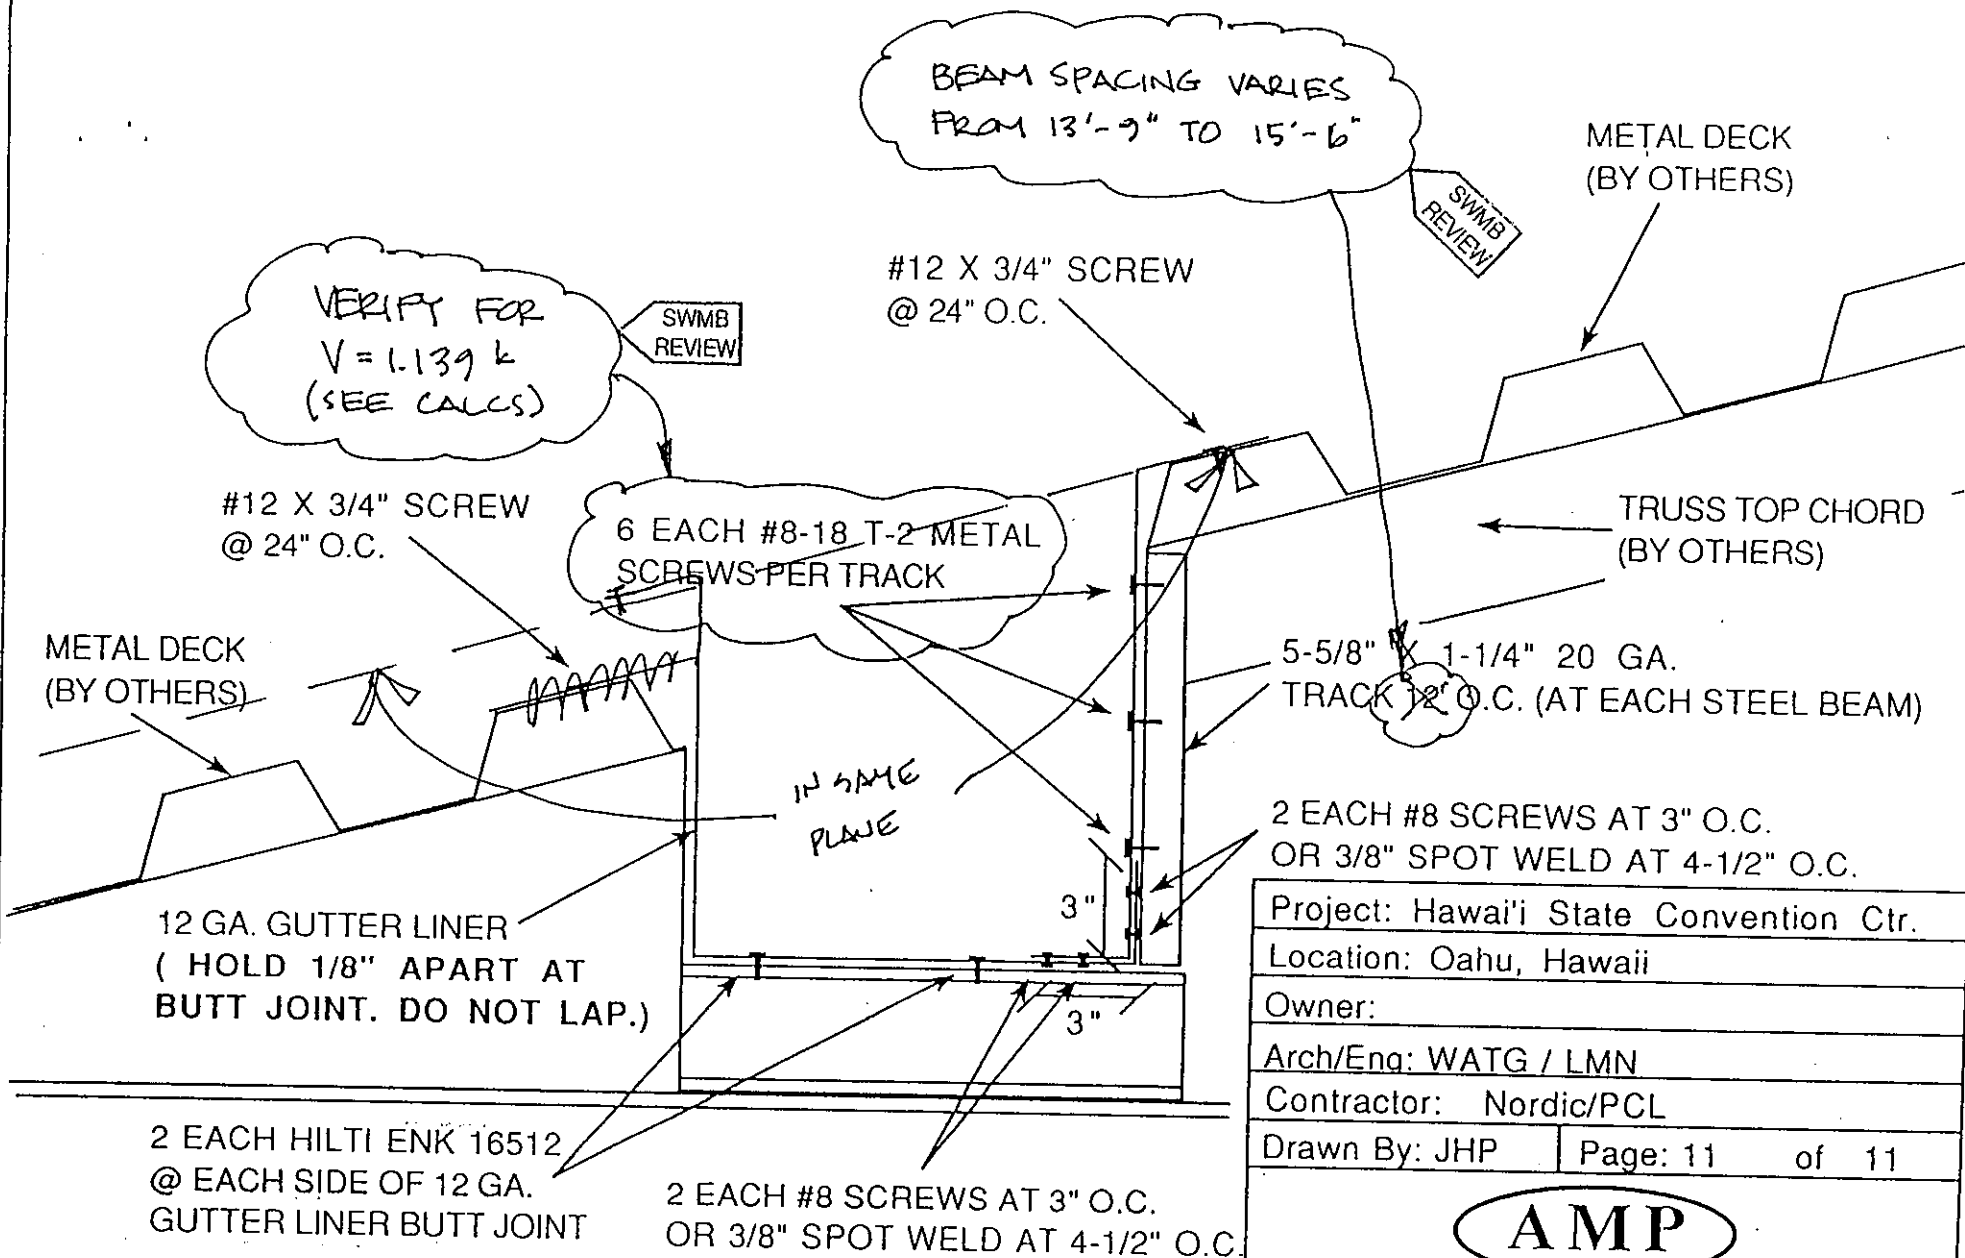 BEAM SPACING VARIES
FROM 13'-9" TO 15'-6"
SWMB
REVIEW
METAL DECK
(BY OTHERS)
VERIFY FOR
V = 1.139 k
(SEE CALCS)
SWMB
REVIEW
#12 X 3/4" SCREW
@ 24" O.C.
#12 X 3/4" SCREW
@ 24" O.C.
6 EACH #8-18 T-2 METAL
SCREWS PER TRACK
TRUSS TOP CHORD
(BY OTHERS)
METAL DECK
(BY OTHERS)
5-5/8" X 1-1/4" 20 GA.
TRACK 12' O.C. (AT EACH STEEL BEAM)
IN SAME
PLANE
2 EACH #8 SCREWS AT 3" O.C.
OR 3/8" SPOT WELD AT 4-1/2" O.C.
3"
12 GA. GUTTER LINER
( HOLD 1/8" APART AT
BUTT JOINT. DO NOT LAP.)
3"
2 EACH HILTI ENK 16512
@ EACH SIDE OF 12 GA.
GUTTER LINER BUTT JOINT
2 EACH #8 SCREWS AT 3" O.C.
OR 3/8" SPOT WELD AT 4-1/2" O.C.
Project: Hawai'i State Convention Ctr.
Location: Oahu, Hawaii
Owner:
Arch/Eng: WATG / LMN
Contractor: Nordic/PCL
Drawn By: JHP Page: 11 of 11
AMP